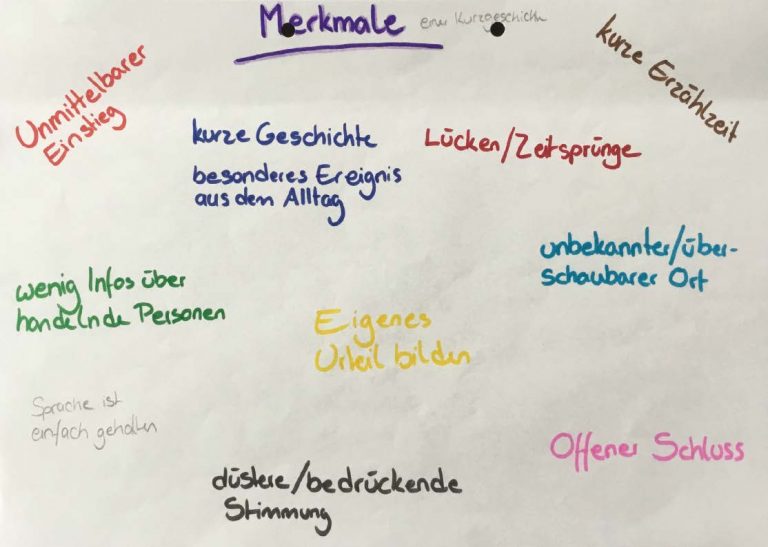 Merkmale einer Kurzgeschichte
Unmittelbarer
Einstieg
kurze Erzählzeit
kurze Geschichte
Lücken/Zeitsprünge
besonderes Ereignis
aus dem Alltag
unbekannter/über-
schaubarer Ort
wenig Infos über
handelnde Personen
Eigenes
Urteil bilden
Sprache ist
einfach gehalten
Offener Schluss
düstere/bedrückende
Stimmung